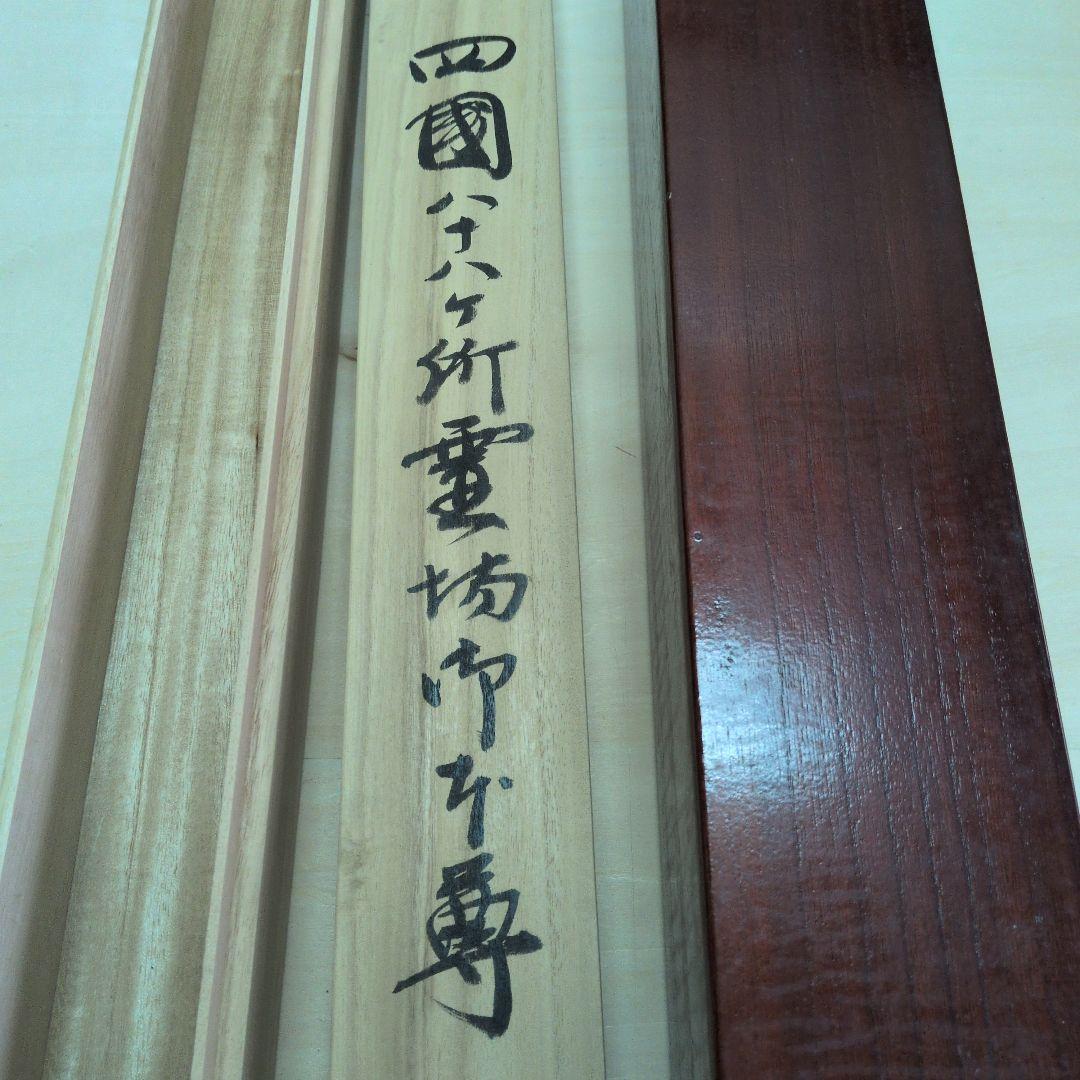 四國八十八ヶ所霊場御本尊